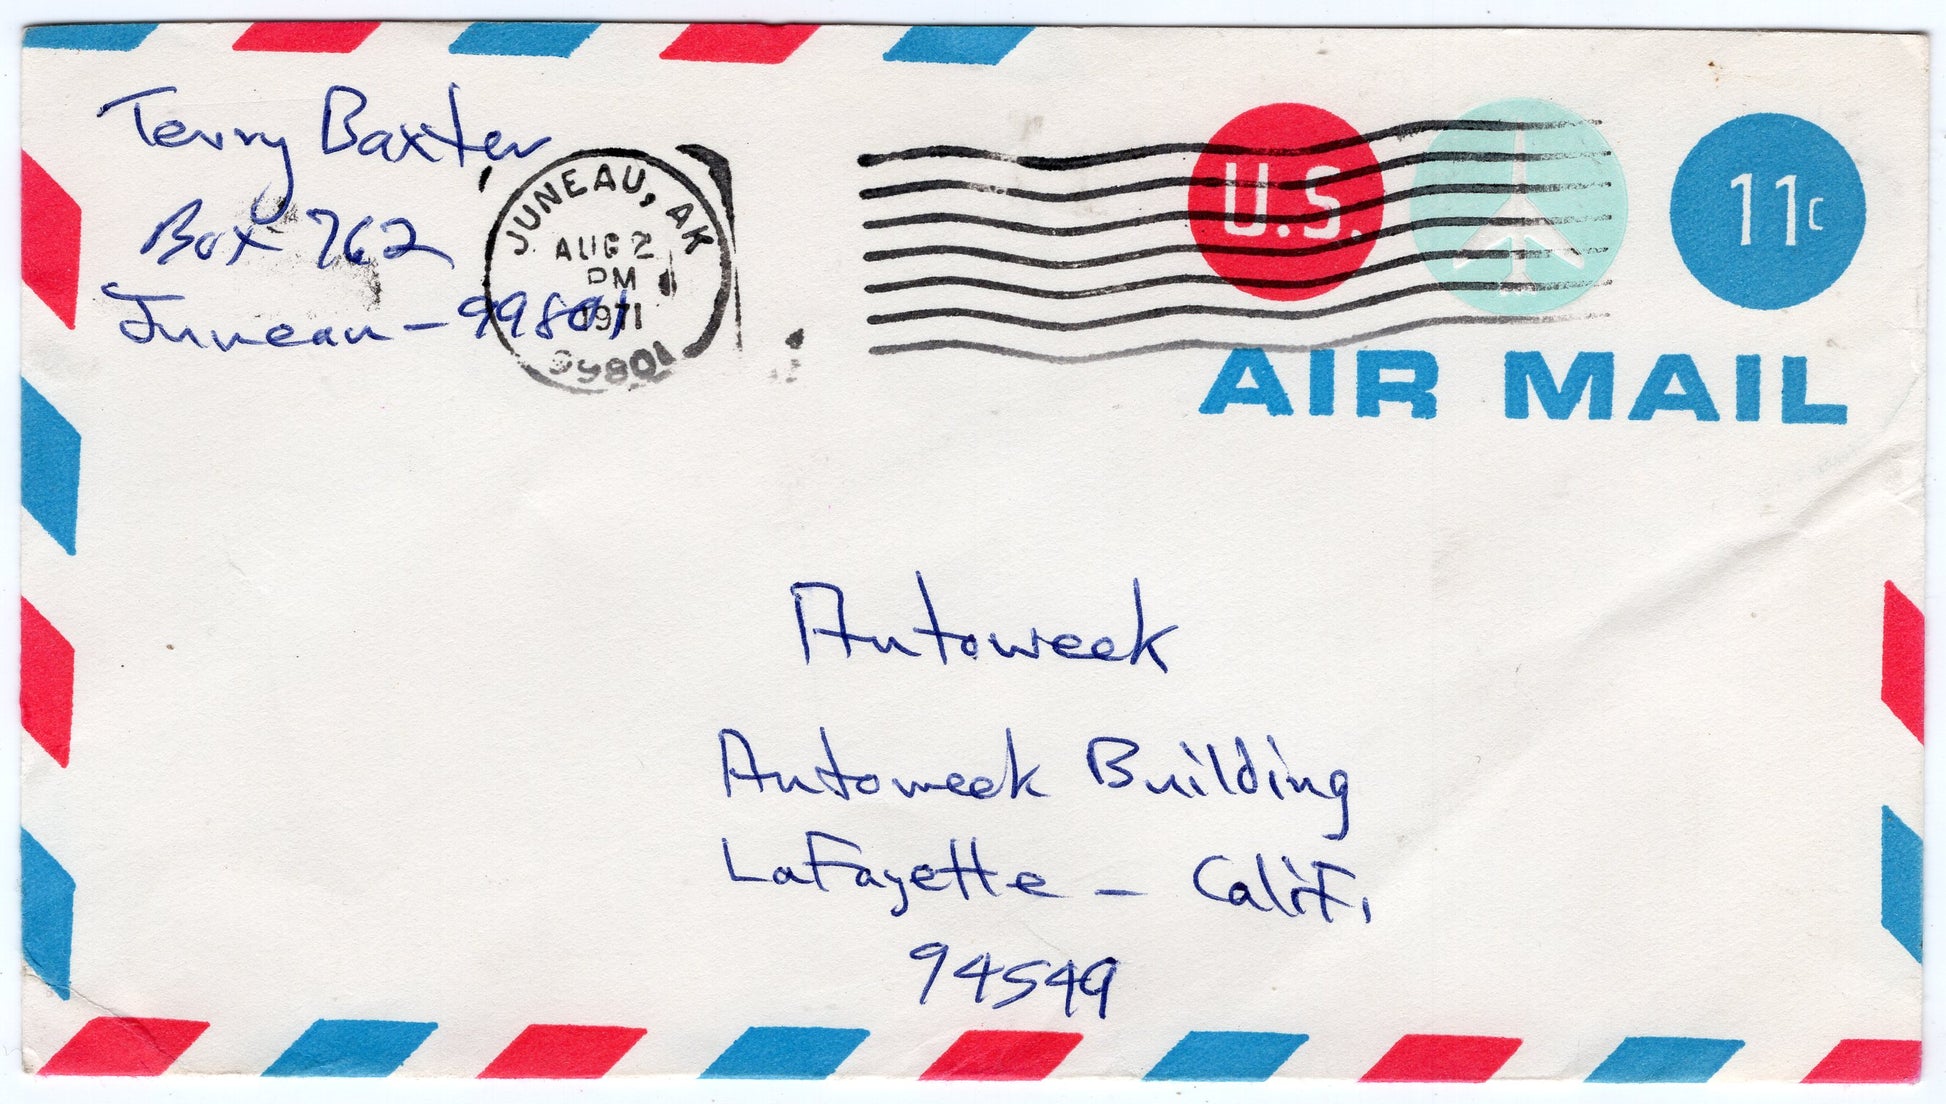 Terry Baxter
Box 762
Juneau - 99801
JUNEAU, AK
AUG 2
PM
1971
99801
U.S.
11c
AIR MAIL
Autoweek
Autoweek Building
LaFayette - Calif.
94549